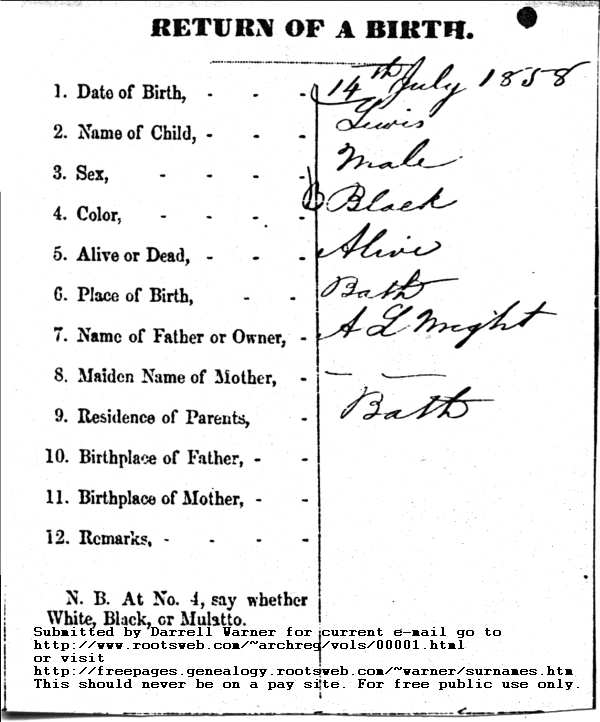 RETURN OF A BIRTH.
1. Date of Birth, - - - 14th July 1858
2. Name of Child, - - - Lewis
3. Sex, - - - - Male
4. Color, - - - - Black
5. Alive or Dead, - - - Alive
6. Place of Birth, - - Bath
7. Name of Father or Owner, - A L Wright
8. Maiden Name of Mother, - — —
9. Residence of Parents, - Bath
10. Birthplace of Father, - -
11. Birthplace of Mother, - -
12. Remarks, - - - -
N. B. At No. 4, say whether
White, Black, or Mulatto.
Submitted by Darrell Warner for current e-mail go to
http://www.rootsweb.com/~archreg/vols/00001.html
or visit
http://freepages.genealogy.rootsweb.com/~warner/surnames.htm
This should never be on a pay site. For free public use only.